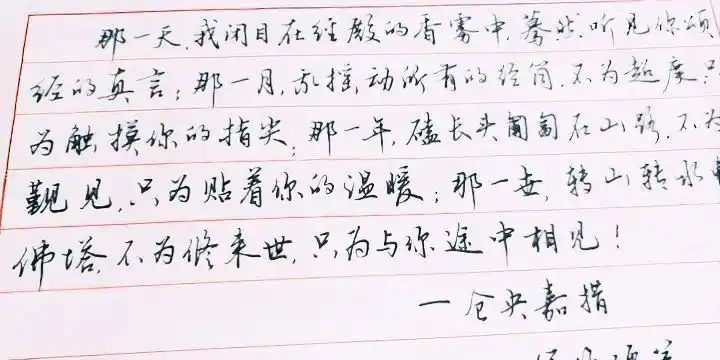 那一天,我闭目在经殿的香雾中,蓦然听见你颂
经的真言;那一月,我摇动所有的经筒,不为超度,只
为触摸你的指尖;那一年,磕长头匍匐在山路,不为
觐见,只为贴着你的温暖;那一世,转山转水转
佛塔,不为修来世,只为与你途中相见!
—仓央嘉措